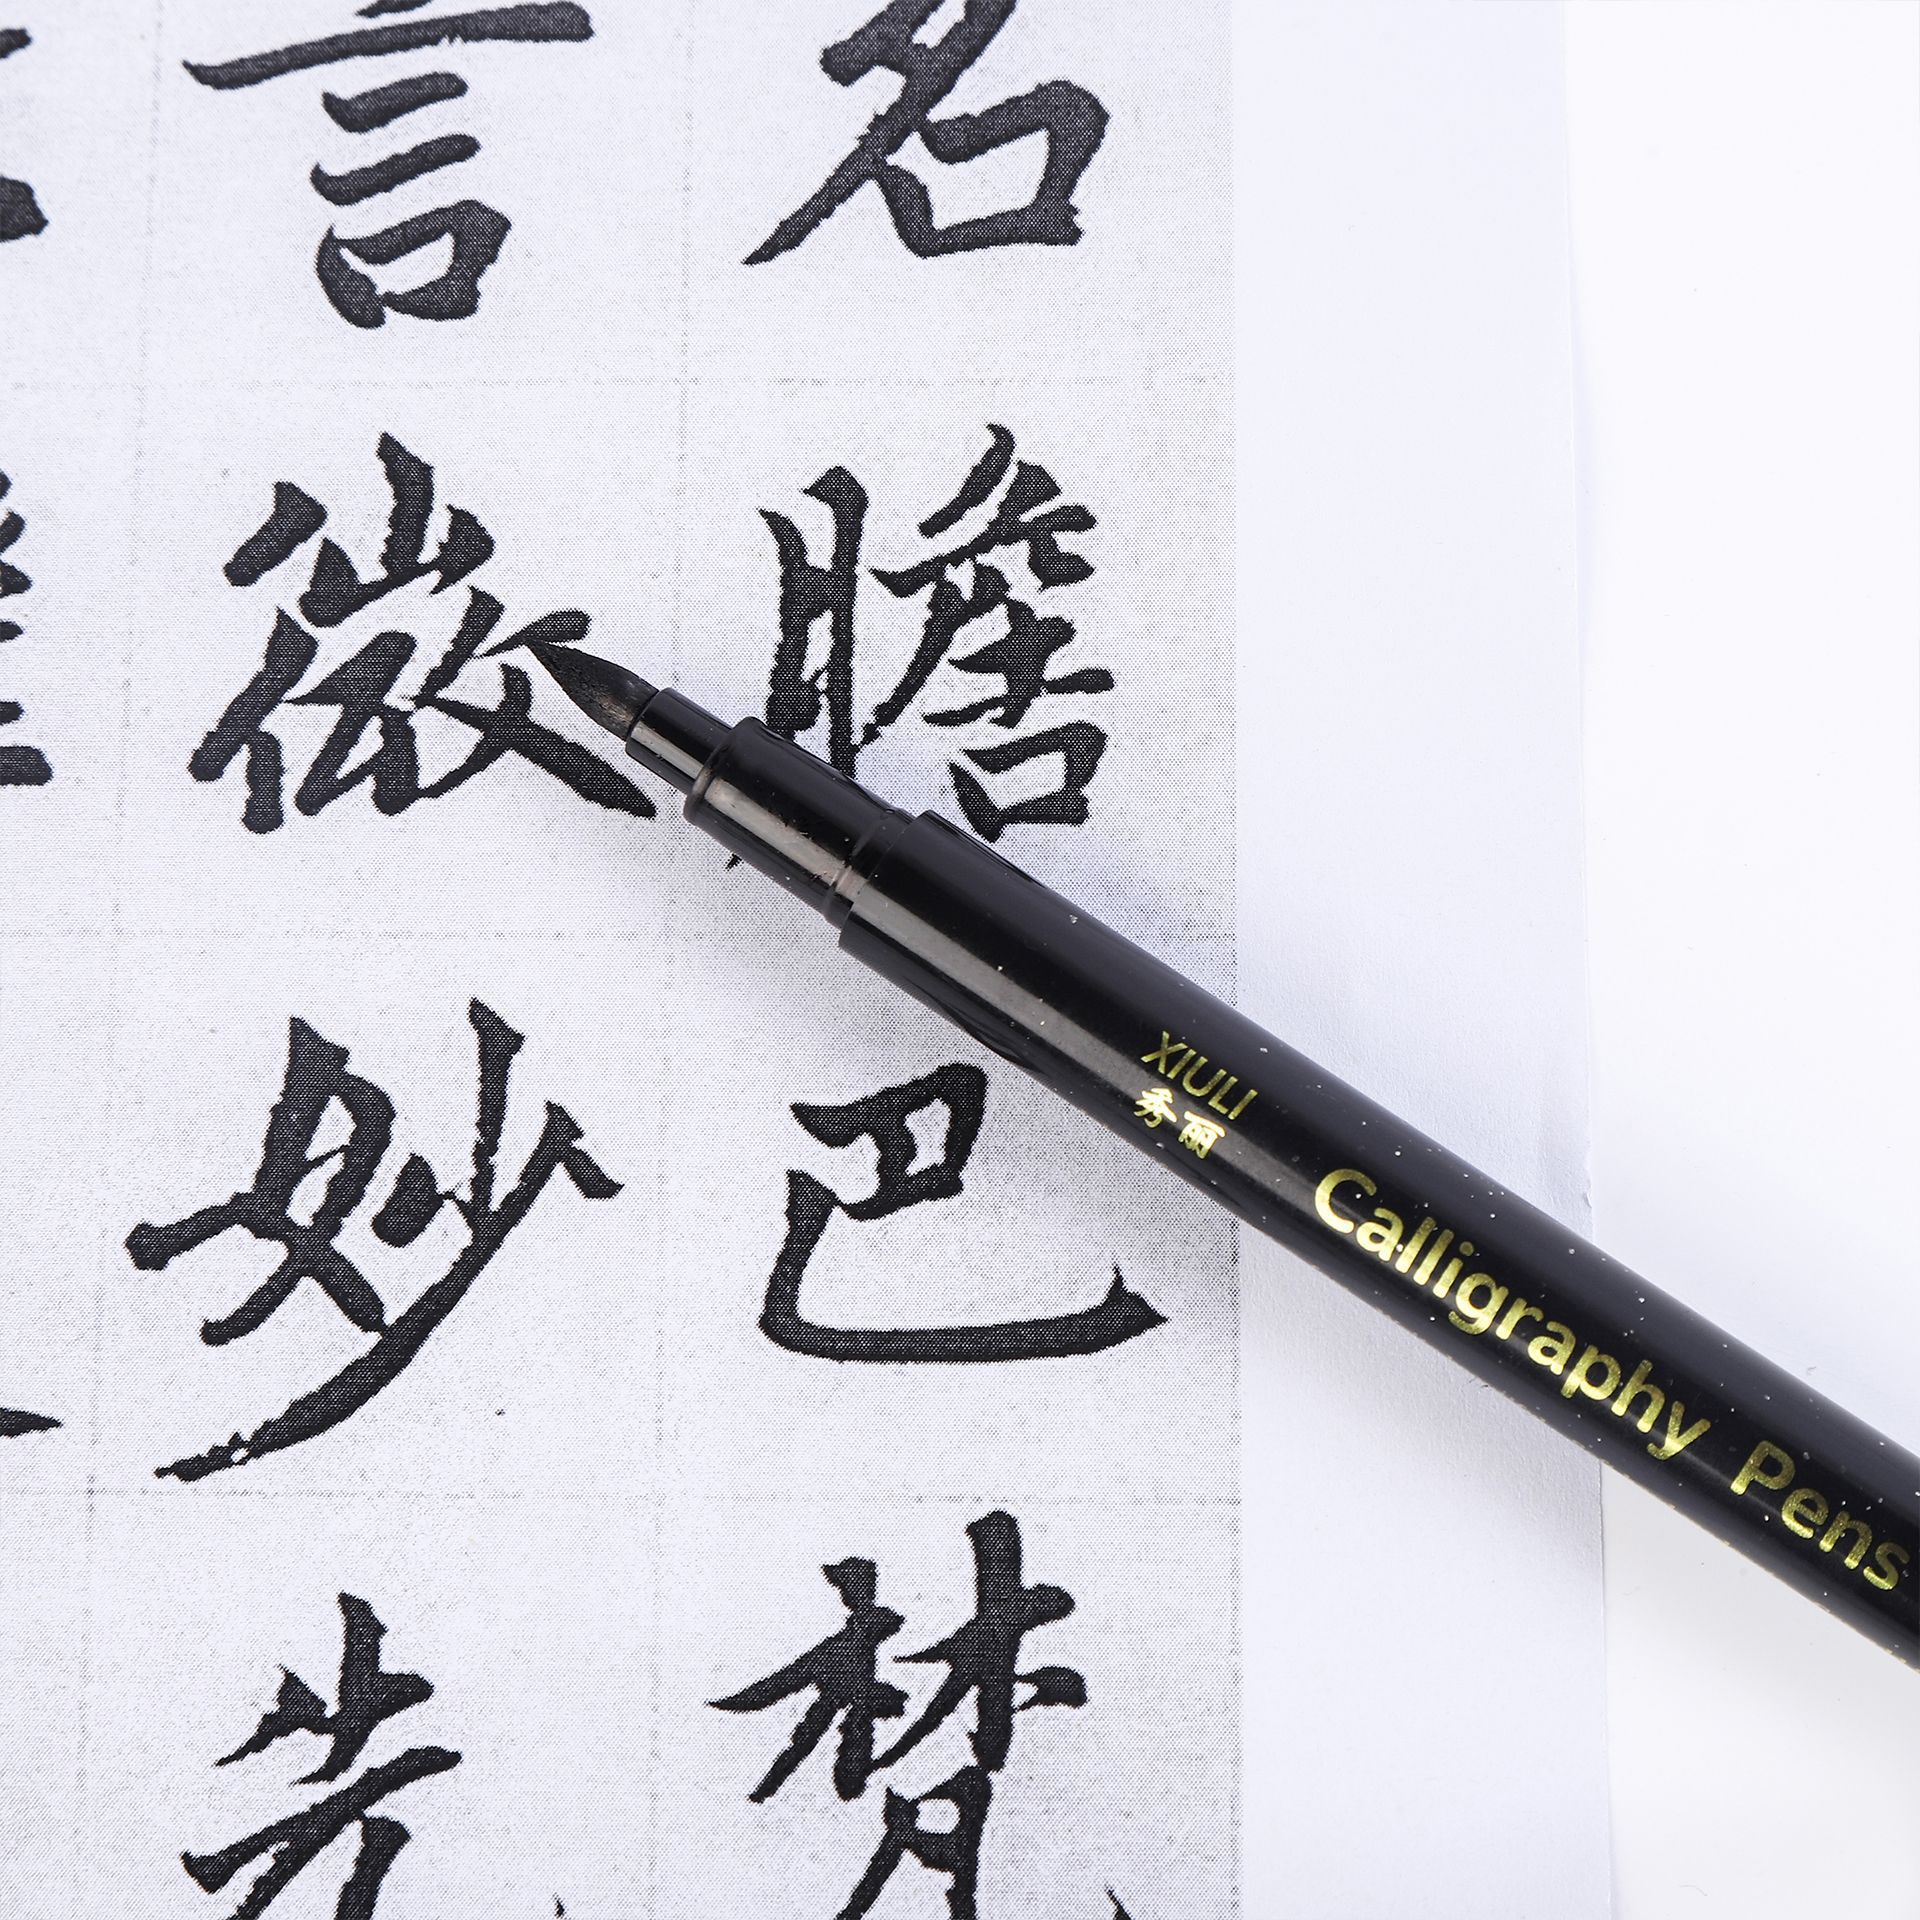 名膽巴梵
言微妙先
XIULI
秀丽
Calligraphy Pens